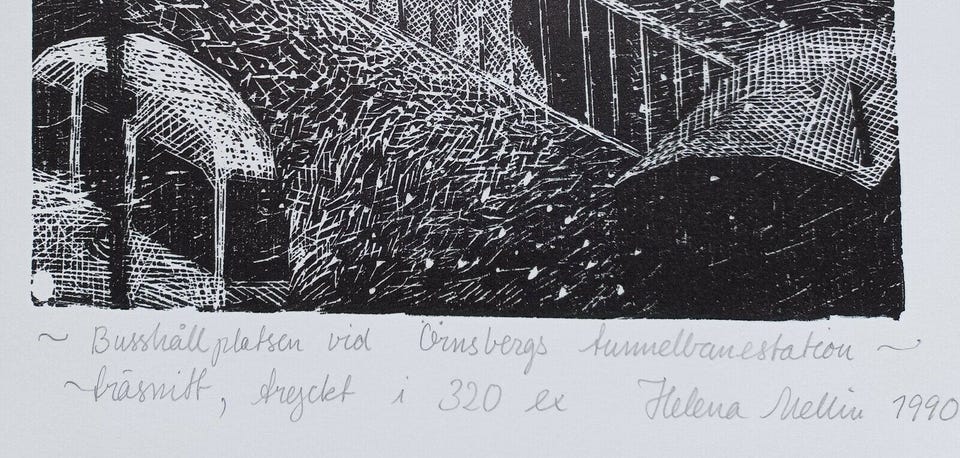 ~ Busshållplatsen vid Örnsbergs tunnelbanestation ~
~ träsnitt, tryckt i 320 ex Helena Mellin 1990